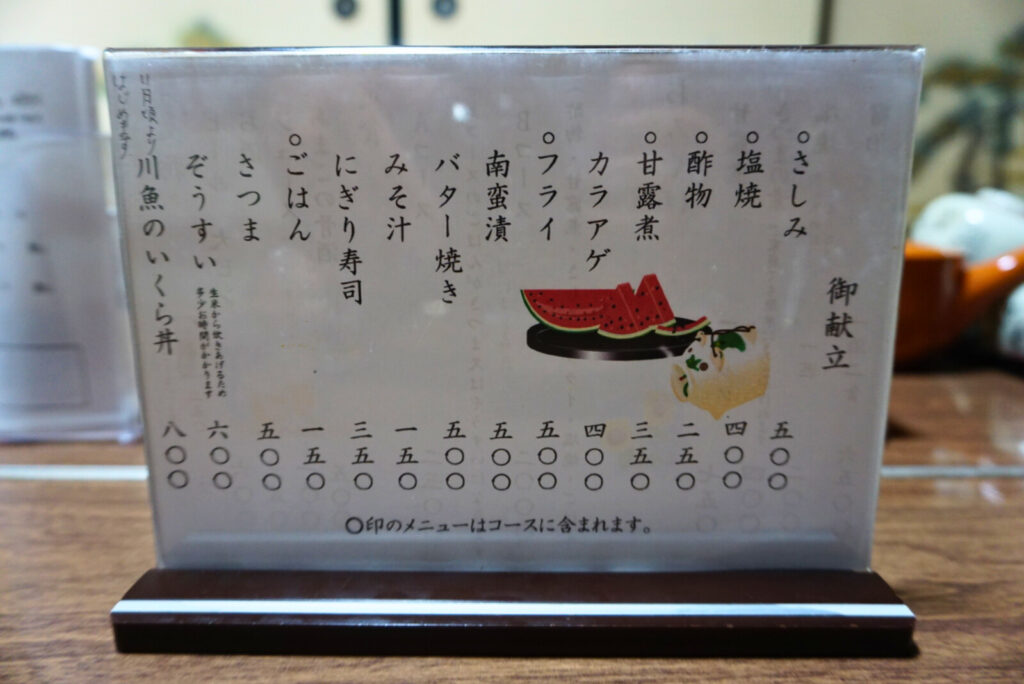 御献立
○さしみ 五〇〇
○塩焼 四〇〇
○酢物 二五〇
○甘露煮 三五〇
カラアゲ 四〇〇
○フライ 五〇〇
南蛮漬 五〇〇
バター焼き 五〇〇
みそ汁 一五〇
にぎり寿司 三五〇
○ごはん 一五〇
さつま 五〇〇
ぞうすい 六〇〇
生米から炊きあげるため
多少お時間がかかります
川魚のいくら丼 八〇〇
11月頃より
はじめます
○印のメニューはコースに含まれます。